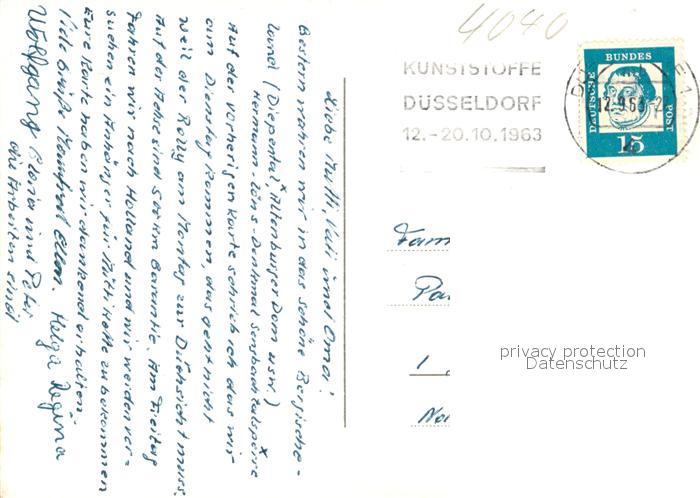 4040
KUNSTSTOFFE
DÜSSELDORF
12.-20.10.1963
DEUTSCHE
BUNDES
POST
15
12.9.63
Liebe Mutti, Vati und Oma!
Gestern waren wir in das schöne Bergische-
Land (Diepental, Altenburger Dom usw.)
Hermann-Löns-Denkmal
Auf der vorherigen Karte schrieb ich das wir
am Dienstag kommen, das geht nicht
weil der Rolly am Montag zur Durchsicht muss.
Auf der Achse sind 500 km Garantie. Am Freitag
fahren wir nach Holland und wir werden ver-
suchen ein Anhänger für Mutti Kette zu bekommen
Eure Karte haben wir dankend erhalten.
Viele Grüße Manfred Ellen. Helga Regina
Wolfgang und Peter
die Arbeiten sind
Fam
Pa
1
No
privacy protection
Datenschutz